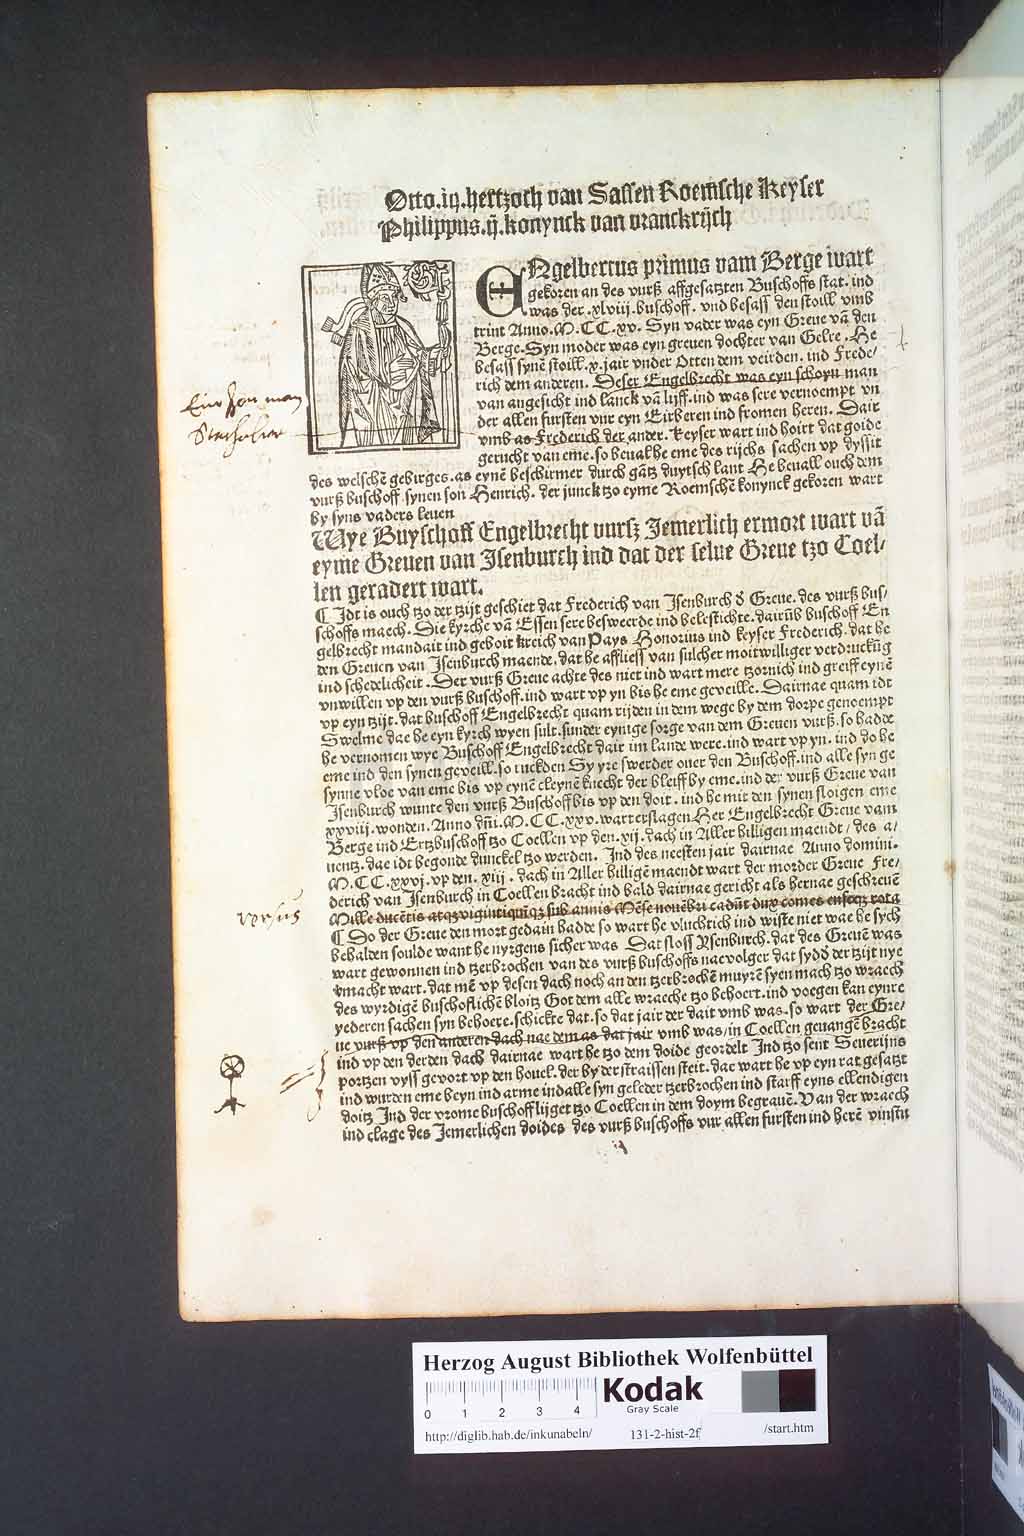 Otto.iiij.hertzoch van Sassen Roemsche Keyser
Philippus.ij.konynck van vranckrijch
ENgelbertus primus vam Berge wart
gekoren an des vurß affgesatzten Buschoffs stat. ind
was der .xlviij. buschoff. vnd besass den stoill vmb
trint Anno. M. CC. xv. Syn vader was eyn Greue vā den
Berge. Syn moder was eyn greuen dochter van Gelre. He
besass synē stoill .x. jair vnder Otten dem veirden. ind Frede/
rich dem anderen. Deser Engelbrecht was eyn schoyn man
van angesicht ind lanck vā lijff. ind was sere vernoempt vn
der allen fursten vur eyn Eirberen ind fromen heren. Dair
vmb as Frederich der ander. Keyser wart ind hoirt dat goide
gerucht van eme. so beual he eme des rijchs sachen vp dyssit
des welschē gebirges. as eynē beschirmer durch gātz duytsch lant He beuall ouch dem
vurß buschoff. synen son Henrich. der junck tzo eyme Roemschē konynck gekoren wart
by syns vaders leuen
Wye Buyschoff Engelbrecht vursz Jemerlich ermort wart vā
eyme Greuen van Jsenburch ind dat der selue Greue tzo Coel/
len geradert wart.
¶ Jdt is ouch tzo der tzijt geschiet dat Frederich van Jsenburch d̕ Greue. des vurß bus/
schoffs maech. Die kyrche vā Essen sere besweerde ind belestichte. dairūb buschoff En
gelbrecht mandait ind geboit kreich van Pays Honorius ind keyser Frederich. dat he
den Greuen van Jsenburch maende. dat he affliess van sulcher moitwilliger verdruckūg
ind schedelicheit. Der vurß Greue achte des niet ind wart mere tzornich ind greiff eynē
vnwillen vp den vurß buschoff. ind wart vp yn bis he eme geveille. Dairnae quam idt
vp eyn tzijt. dat buschoff Engelbrecht quam rijden in dem wege by dem dorpe genoempt
Swelme dae he eyn kyrch wyen sult. sunder eynige sorge van dem Greuen vurß. so hadde
he vernomen wye Buschoff Engelbrecht dair im lande were. ind wart vp yn. ind do he
eme ind den synen geveill. so tuckden Sy yre swerder ouer den Buschoff. ind alle syn ge
synne vloe van eme bis vp eynē cleynē knecht der bleiff by eme. ind der vurß Greue van
Jsenburch wunte den vurß Buschoff bis vp den doit. ind he mit den synen sloigen eme
xxviij. wonden. Anno dñi. M. CC. xxv. wart erslagen Her Engelbrecht Greue vam
Berge ind Ertzbuschoff tzo Coellen vp den. vij. dach in Aller hilligen maendt / des a/
uentz. dae idt begonde dunckel tzo werden. Jnd des neesten jair dairnae Anno domini.
M. CC. xxvj. vp den. xiij. dach in Aller hilligē maendt wart der morder Greue Fre/
derich van Jsenburch in Coellen bracht ind bald dairnae gericht als hernae geschreuē
Mille ducētis atqz vigintiquīqz sub annis Mēse nouēbri cadūt dux comes enseqz rota
¶ Do der Greue den mort gedain hadde so wart he vluchtich ind wiste niet wae he sych
behalden soulde want he nyrgens sicher was Dat sloss Ysenburch. dat des Greuē was
wart gewonnen ind tzerbrochen van des vurß buschoffs naevolger dat sydd̕ der tzijt nye
vmacht wart. dat mē vp desen dach noch an den tzerbrochē muyrē syen mach tzo wraech
des wyrdigē buschoflichē bloitz Got dem alle wraeche tzo behoert. ind voegen kan eynre
yederen sachen syn behoere. schickte dat. so dat jair der dait vmb was. so wart der Gre/
ue vurß vp den anderen dach nae dem as dat jair vmb was / in Coellen geuangē bracht
ind vp den derden dach dairnae wart he tzo dem doide geordelt Jnd tzo sent Seuerijns
portzen vyss gevort vp den houel. der by der straissen steit. dae wart he vp eyn rat gesatzt
ind wurden eme beyn ind arme ind alle syn geleder tzerbrochen ind starff eyns ellendigen
doitz Jnd der vrome buschoff lijget tzo Coellen in dem doym begrauē. Van der wraech
ind clage des Jemerlichen doides des vurß buschoffs vur allen fursten ind herē vinstu
versus
Herzog August Bibliothek Wolfenbüttel
0 1 2 3 4
Kodak
Gray Scale
http://diglib.hab.de/inkunabeln/ 131-2-hist-2f /start.htm